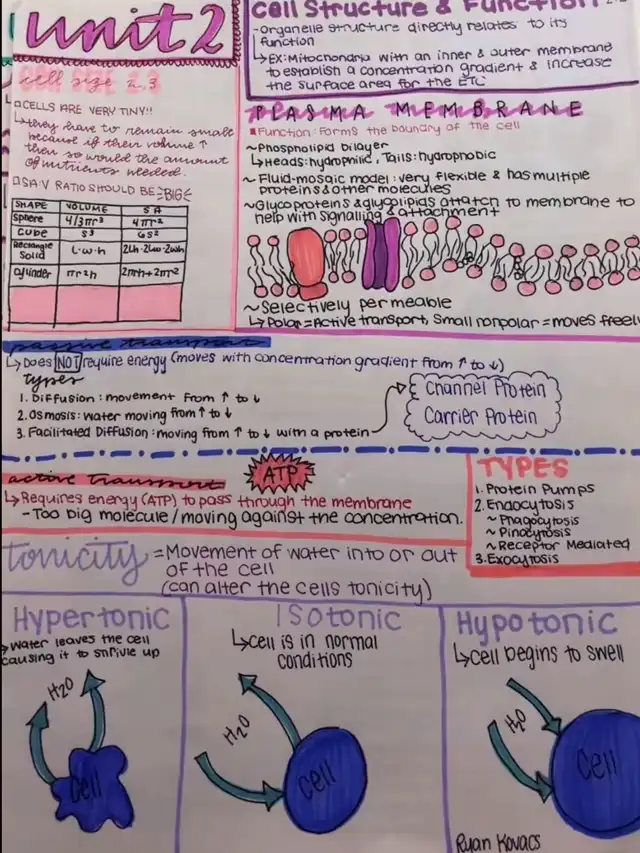 unit 2
cell size 2.3
CELLS ARE VERY TINY!!
↳they have to remain small
because if their volume ↑
then so would the amount
of nutrients needed.
SA:V RATIO SHOULD BE BIG
SHAPE VOLUME SA
Sphere 4/3πr³ 4πr²
Cube s³ 6s²
Rectangle Solid L·w·h 2Lh·2Lw·2wh
cylinder πr²h 2πrh+2πr²
Cell Structure & Function
-Organelle structure directly relates to its
function
↳EX: Mitochondria with an inner & outer membrane
to establish a concentration gradient & increase
the surface area for the ETC
PLASMA MEMBRANE
Function: Forms the boundry of the cell
~Phospholipid bilayer
↳Heads: hydrophilic, Tails: hydrophobic
~Fluid-mosaic model: very flexible & has multiple
proteins & other molecules
~Glycoproteins & glycolipids attatch to membrane to
help with signalling & attachment
~Selectively permeable
↳Polar=Active transport, Small nonpolar=moves freely
passive transport
↳Does NOT require energy (moves with concentration gradient from ↑ to ↓)
types
1. Diffusion: movement from ↑ to ↓
2. Osmosis: water moving from ↑ to ↓
3. Facilitated Diffusion: moving from ↑ to ↓ with a protein
Channel Protein
Carrier Protein
active transport
ATP
↳Requires energy (ATP) to pass through the membrane
-Too big molecule/moving against the concentration.
TYPES
1. Protein Pumps
2. Endocytosis
~Phagocytosis
~Pinocytosis
~Receptor Mediated
3. Exocytosis
tonicity =Movement of water into or out
of the cell
(can alter the cells tonicity)
Hypertonic
water leaves the cell
causing it to shrivle up
H2O
Cell
Isotonic
↳cell is in normal
conditions
H2O
cell
Hypotonic
↳cell begins to swell
H2O
Cell
Ryan Kovacs